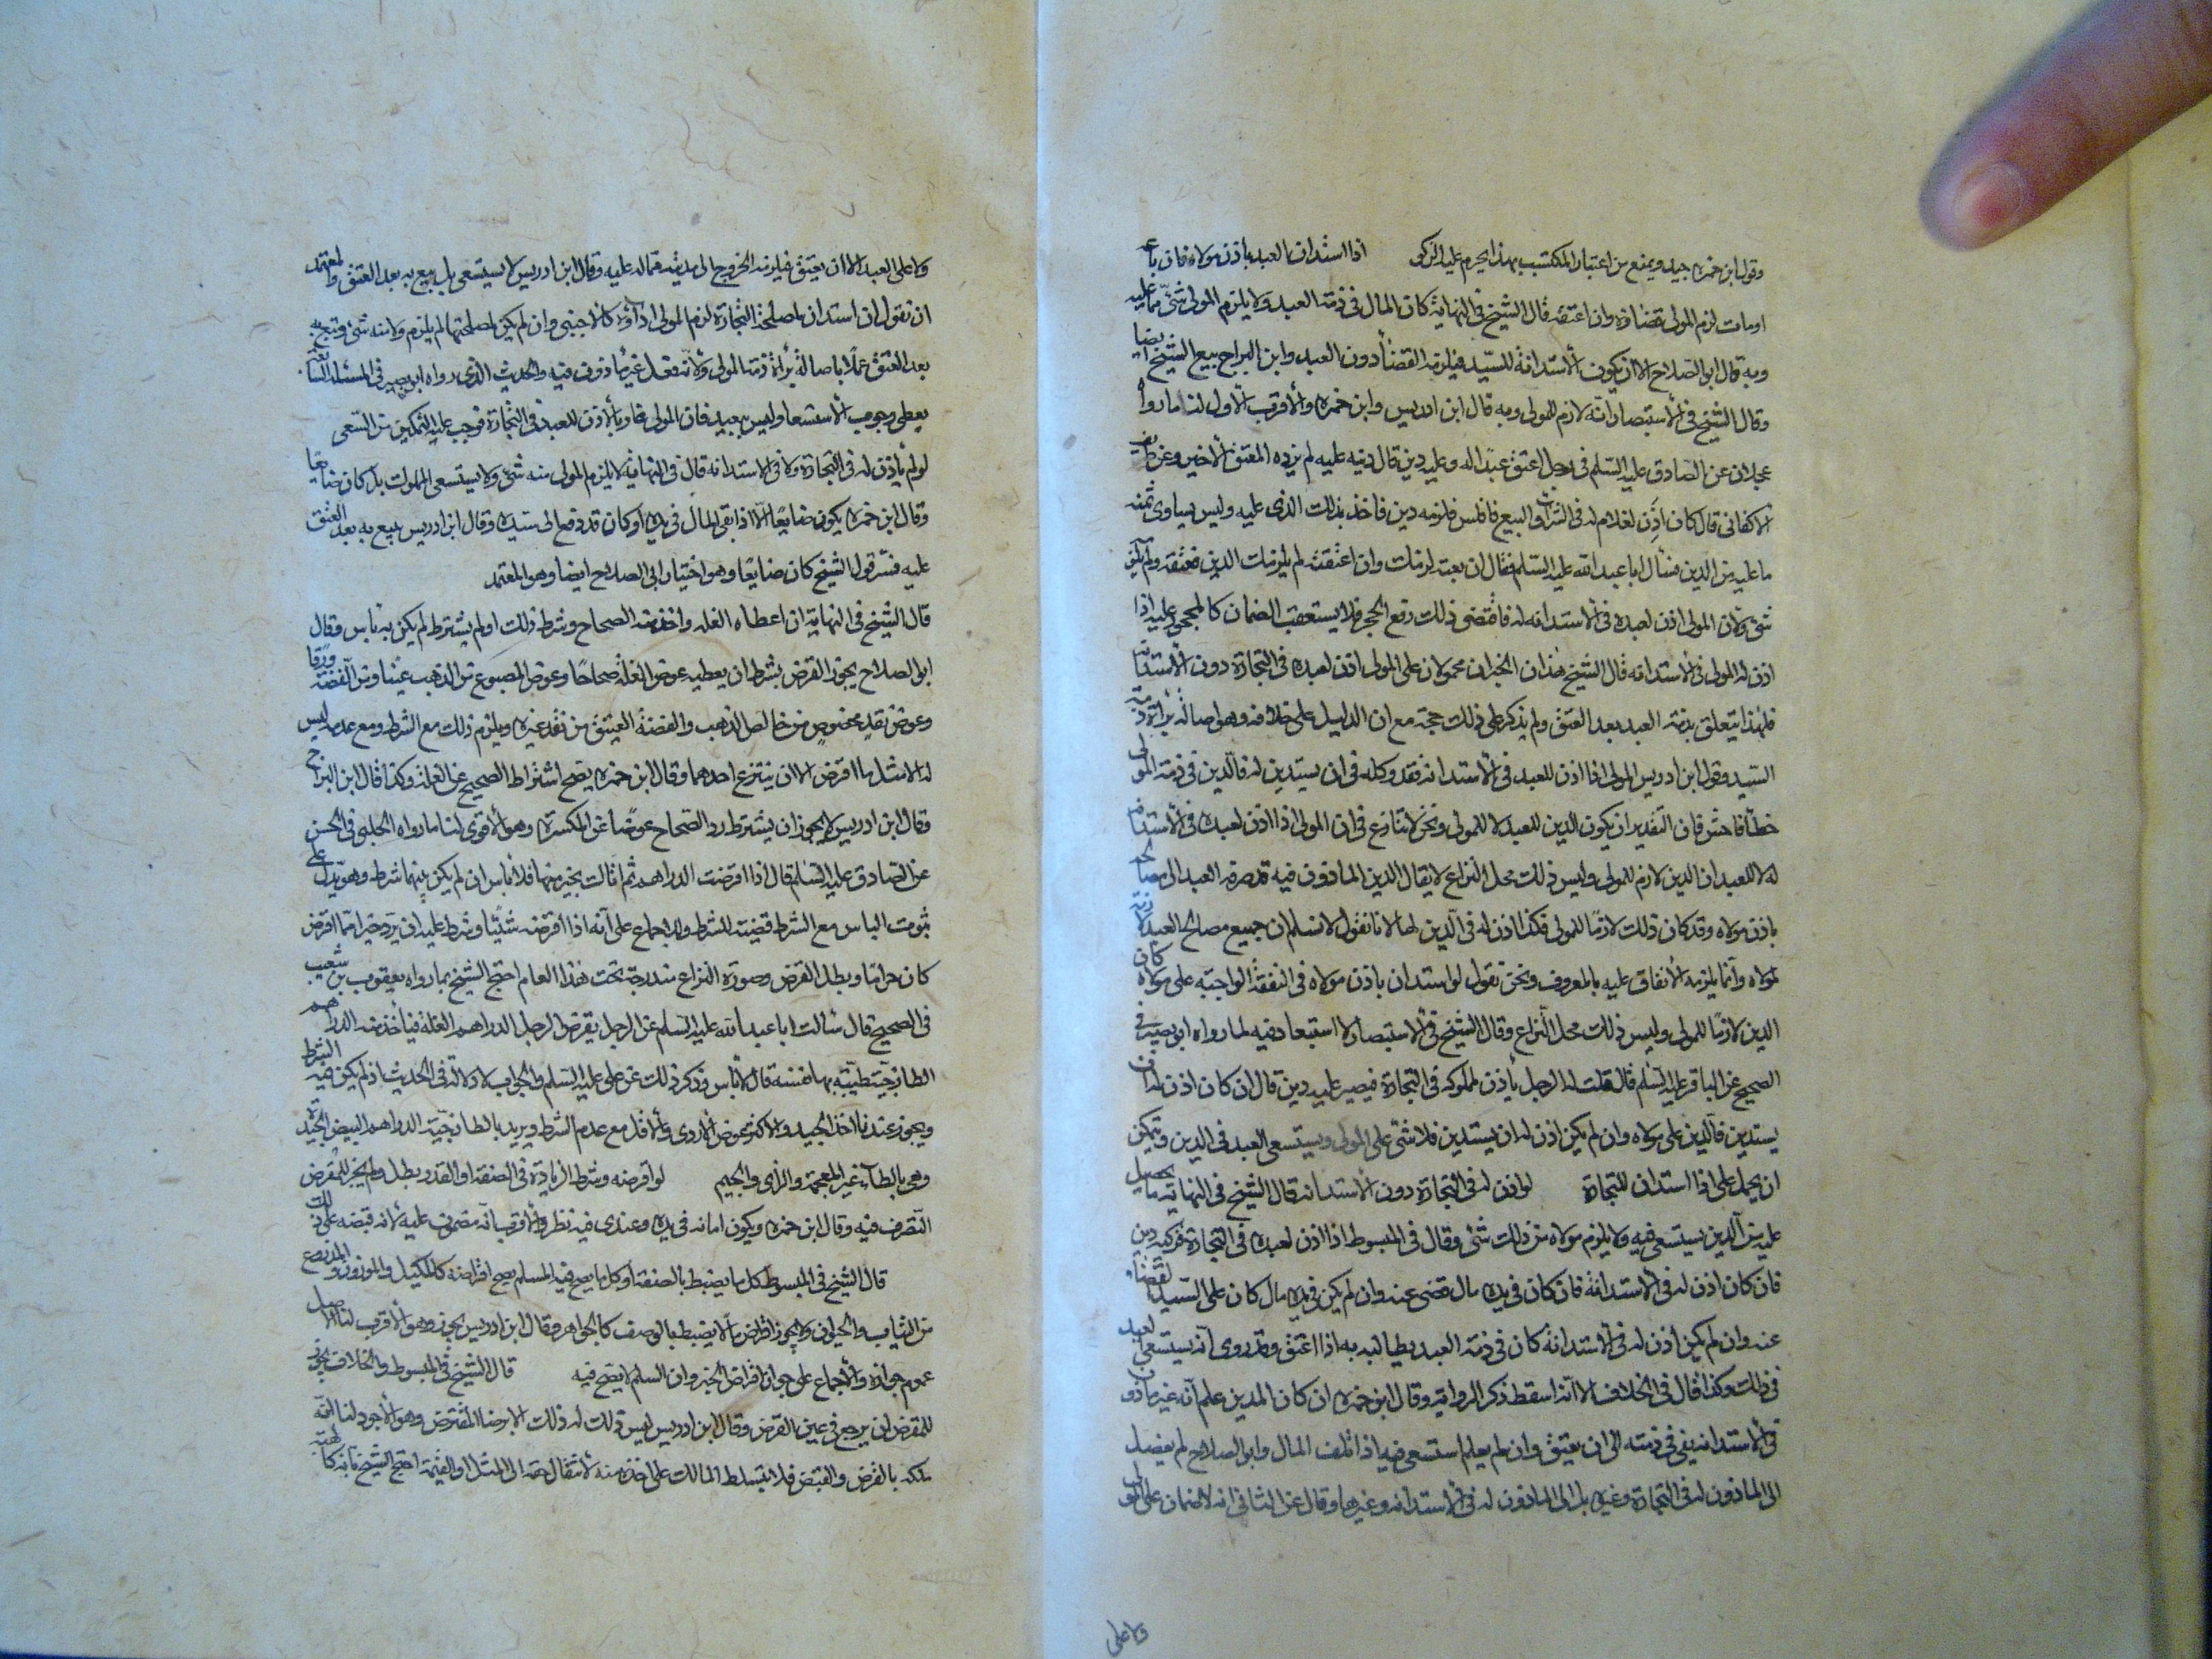 وقول ابن حمزه جيد ويمنع من اعتبار المكتسب بهذا يحرم عليه الزكوة اذا استدان العبد باذن مولاه فان باعه
او مات لزم المولى قضاؤه وان اعتقه قال الشيخ فى النهاية كان المال فى ذمة العبد ولا يلزم المولى شئ مما عليه
وبه قال ابو الصلاح الا ان يكون الاستدانة للسيد فيلزمه القضأ دون العبد وابن البراج تبع الشيخ ايضا
وقال الشيخ فى الاستبصار انه لازم للمولى وبه قال ابن ادريس وابن حمزه والاقرب الاول لنا ما رواه
عجلان عن الصادق عليه السلم فى رجل اعتق عبدا له وعليه دين قال دينه عليه لم يزده المعتق الا خيرا وعن ظريف
الاكفانى قال كان اذن لغلام له فى الشرأ والبيع فافلس فلزمه دين فاخذ بذلك الذى عليه وليس يساوى ثمنه
ما عليه من الدين فسأل ابا عبد الله عليه السلم فقال ان بعته لزمك وان اعتقته لم يلزمك الدين فعتقه ولم يلزمه
شئ ولان المولى اذن لعبده فى الاستدانه له فاقتضى ذلك رفع الحجر فلا يستعقب الضمان كالمحجور عليه اذا
اذن له المولى فى الاستدانه قال الشيخ هذان الخبران محمولان على المولى اذن لعبده فى التجارة دون الاستدانة
فلهذا يتعلق بذمة العبد بعد العتق ولم يذكر على ذلك حجة مع ان الدليل على خلافه وهو اصالة برأة ذمة
السيد وقول ابن ادريس المولى اذا اذن للعبد فى الاستدانه فقد وكله فى ان يستدين له فالدين فى ذمة المولى
خطأ فاحش فان التقدير ان يكون الدين للعبد لا للمولى ونحن لا نتنازع فى ان المولى اذا اذن لعبده فى الاستدانة
له لا للعبد ان الدين لازم للمولى وليس ذلك محل النزاع لا يقال الدين الماذون فيه قد صرفه العبد الى مصالحه
باذن مولاه وقد كان ذلك لازما للمولى فكذا اذن له فى الدين لها لانا نقول لا نسلم ان جميع مصالح العبد لازمة
لمولاه وانما يلزمه الانفاق عليه بالمعروف ونحن نقول لو استدان باذن مولاه فى النفقة الواجبة على مولاه كان
الدين لازما للمولى وليس ذلك محل النزاع وقال الشيخ فى الاستبصار لا استبعاد فيه لما رواه ابو بصير فى
الصحيح عن الباقر عليه السلم قال قلت له الرجل يأذن لمملوكه فى التجارة فيصير عليه دين قال ان كان اذن له ان
يستدين فالدين على مولاه وان لم يكن اذن له ان يستدين فلا شئ على المولى ويستسعى العبد فى الدين ويمكن
ان يحمل على اذا استدان للتجارة لو اذن له فى التجارة دون الاستدانه قال الشيخ فى النهاية ما يحصل
عليه من الدين يستسعى فيه ولا يلزم مولاه من ذلك شئ وقال فى المبسوط اذا اذن لعبده فى التجارة فركبه دين
فان كان اذن له فى الاستدانة فان كان فى يده مال قضى عنه وان لم يكن فى يده مال كان على السيد القضأ
عنه وان لم يكن اذن له فى الاستدانة كان فى ذمة العبد يطالب به اذا اعتق وقد روى انه يستسعى العبد
فى ذلك وكذا قال فى الخلاف الا انه اسقط ذكر الرواية وقال ابن حمزه ان كان المدين علم انه غير مأذون
فى الاستدانه بقى فى ذمته الى ان يعتق وان لم يعلم استسعى فيه اذا تلف المال وابو الصلاح لم يفصل
الى الماذون له فى التجارة وغيره بل الى الماذون له فى الاستدانه وغيرها وقال عن الثانى انه لا ضمان على المولى
ولا على
ولا على العبد الا ان يعتق فيلزمه الخروج الى مدينه مما له عليه وقال ابن ادريس لا يستسعى بل يتبع به بعد العتق والمعتمد
ان نقول ان استدان لمصلحة التجارة لزم المولى اداؤه كالاجنبى وان لم يكن لمصلحتها لم يلزم ولاه منه شئ وتبع به
بعد العتق عملا باصالة برأة ذمة المولى ولانه فعل غير مأذون فيه والحديث الذى رواه ابو بصير فى المسئلة السابقة
يعطى وجوب الاستسعا وليس ببعيد فان المولى غار بالاذن للعبد فى التجارة فوجب عليه التمكين من السعى
لو لم يأذن له فى التجارة ولا فى الاستدانه قال فى النهاية لا يلزم المولى منه شئ ولا يستسعى المملوك بل كان ضايعا
وقال ابن حمزه يكون ضايعا الا اذا بقى المال فى يده او كان قد دفع الى سيده وقال ابن ادريس يتبع به بعد العتق
عليه فسر قول الشيخ كان ضايعا وهو اختيار ابى الصلاح ايضا وهو المعتمد
قال الشيخ فى النهاية ان اعطاه الغله واخذ منه الصحاح وشرط ذلك او لم يشترط لم يكن به بأس وقال
ابو الصلاح يجوز القرض بشرط ان يعطيه عوض الغلة صحاحا وعوض المصوغ من الذهب عينا ومن الفضة ورقا
وعوض نقد مخصوص من خالص الذهب والفضة العتيق من نقد غيره ويلزم ذلك مع الشرط ومع عدمه ليس
له الا مثل ما اقرض الا ان يتبرع احدهما وقال ابن حمزه يصح اشتراط الصحيح عن الغله وكذا قال ابن البراج
وقال ابن ادريس لا يجوز ان يشترط رد الصحاح عوضا عن المكسرة وهو الاقوى لنا ما رواه الحلبى فى الحسن
عن الصادق عليه السلم قال اذا اقرضت الدراهم ثم اتاك بخير منها فلا بأس ان لم يكن بينهما شرط وهو يدل على
ثبوت الباس مع الشرط قضيته للشرط وللاجماع على انه اذا اقرضه شيئا وشرط عليه ان يرد خيرا مما اقترض
كان حراما وبطل القرض وصورة النزاع مندرجة تحت هذا العام احتج الشيخ بما رواه يعقوب بن شعيب
فى الصحيح قال سالت ابا عبد الله عليه السلم عن الرجل يقرض الرجل الدراهم الغلة فيأخذ منه الدراهم
الطازجية طيبة بها نفسه قال لا بأس وذكر ذلك عن على عليه السلم والجواب لا دلالة فى الحديث اذ لم يكن فيه الشرط
ويجوز عندنا اخذ الجيد والاكثر عوض الاردى والاقل مع عدم الشرط ويريد بالطازجية الدراهم البيض الجيدة
وهى بالطآء غير المعجمة والزاى والجيم لو اقرضه وشرط الزيادة فى الصفة او القدر بطل ولم يجز للمقترض
التصرف فيه وقال ابن حمزه ويكون امانه فى يده وعندى فيه نظر والاقرب انه مضمون عليه لانه قبضه على ذلك
قال الشيخ فى المبسوط كل ما يضبط بالصفة او كل ما يصح فيه السلم يصح اقراضه كالمكيل والموزون والمذروع
من الثياب والحيوان ولا يجوز اقراض ما لا يضبط بالوصف كالجواهر وقال ابن ادريس يجوز وهو الاقرب لنا الاصل
عموم جوازه والاجماع على جواز اقراض الخبز وان السلم لا يصح فيه قال الشيخ فى المبسوط والخلاف يجوز
للمقرض ان يرجع فى عين القرض وقال ابن ادريس ليس ذلك له ذلك الا برضا المقترض وهو الاجود لنا انه
ملكه بالقرض والقبض فلا يتسلط المالك على اخذه منه لانتقال حقه الى المثل او القيمة احتج الشيخ بانه كالهبة